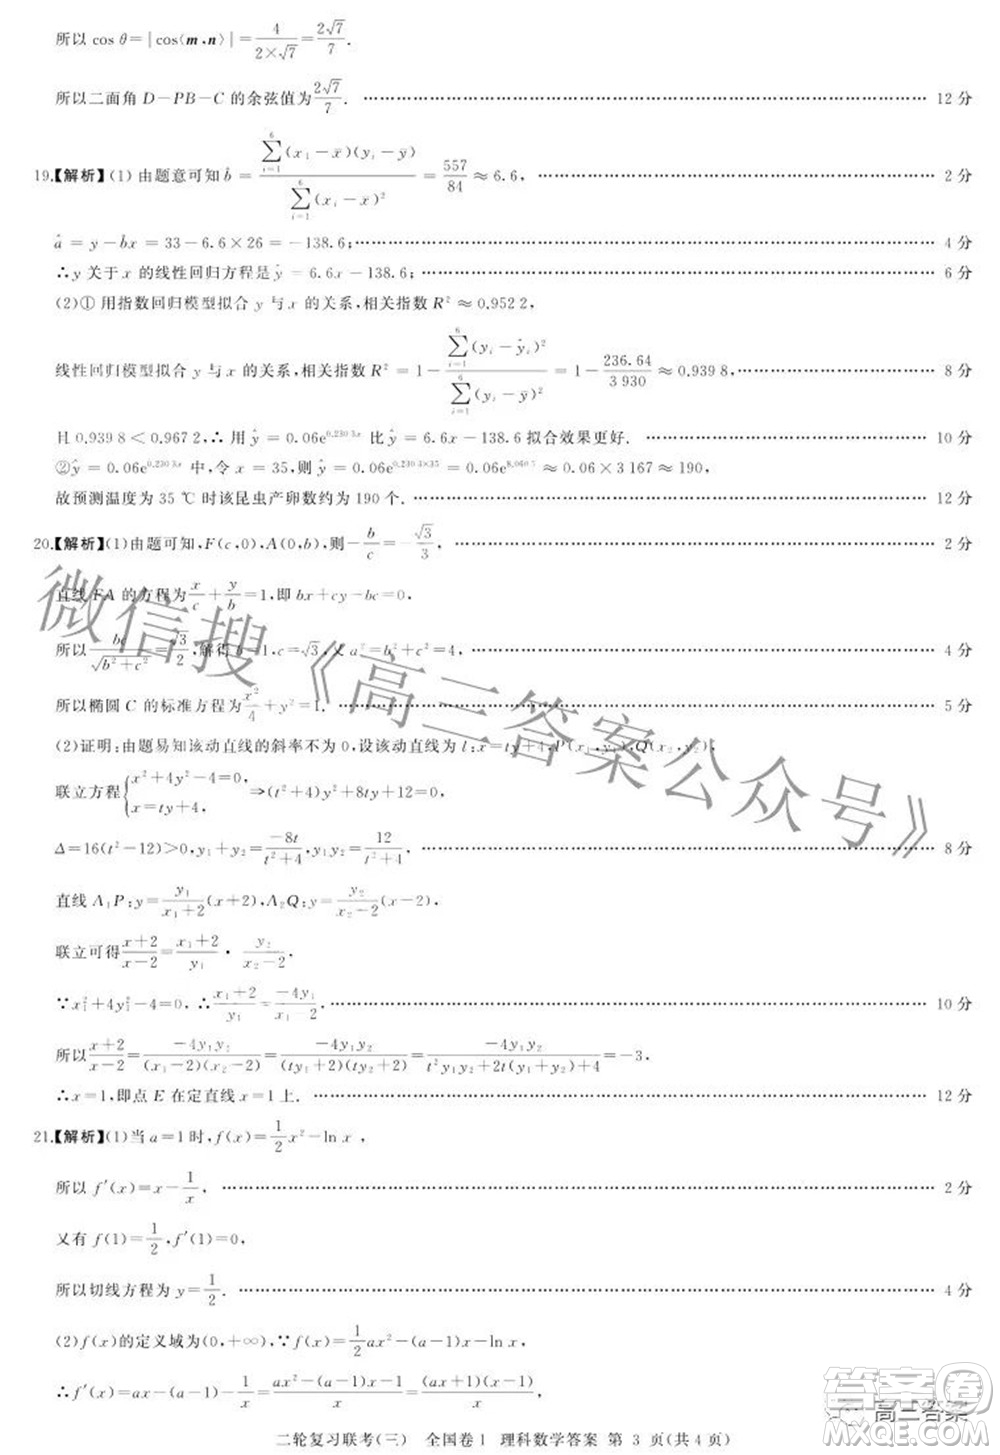 所以 cos θ=|cos⟨m,n⟩|=4/(2×√7)=2√7/7.
所以二面角 D-PB-C 的余弦值为 2√7/7. ………… 12 分
19.【解析】(1) 由题意可知 b̂=∑_{i=1}^{6}(x_i-x̄)(y_i-ȳ)/∑_{i=1}^{6}(x_i-x̄)²=557/84≈6.6, ………… 2 分
â=y-b̂x=33-6.6×26=-138.6; ………… 4 分
∴y 关于 x 的线性回归方程是 ŷ=6.6x-138.6; ………… 6 分
(2)① 用指数回归模型拟合 y 与 x 的关系,相关指数 R²≈0.952 2,
线性回归模型拟合 y 与 x 的关系,相关指数 R²=1-∑_{i=1}^{6}(y_i-ŷ_i)²/∑_{i=1}^{6}(y_i-ȳ)²=1-236.64/3 930≈0.939 8, ………… 8 分
且 0.939 8<0.967 2,∴ 用 ŷ=0.06e^{0.230 3x} 比 ŷ=6.6x-138.6 拟合效果更好. ………… 10 分
②ŷ=0.06e^{0.230 3x} 中,令 x=35,则 ŷ=0.06e^{0.230 3×35}=0.06e^{8.060 5}≈0.06×3 167≈190,
故预测温度为 35 ℃时该昆虫产卵数约为 190 个. ………… 12 分
20.【解析】(1)由题可知,F(c,0),A(0,b),则-b/c=-√3/3, ………… 2 分
直线 FA 的方程为 x/c+y/b=1,即 bx+cy-bc=0,
所以 bc/√(b²+c²)=√3/2,解得 b=1,c=√3,又 a²=b²+c²=4, ………… 4 分
所以椭圆 C 的标准方程为 x²/4+y²=1. ………… 5 分
(2)证明:由题易知该动直线的斜率不为 0,设该动直线为 l:x=ty+4,P(x₁,y₁),Q(x₂,y₂),
联立方程{x²+4y²-4=0, x=ty+4, ⇒(t²+4)y²+8ty+12=0,
Δ=16(t²-12)>0,y₁+y₂=-8t/(t²+4),y₁y₂=12/(t²+4). ………… 8 分
直线 A₁P:y=y₁/(x₁+2)(x+2),A₂Q:y=y₂/(x₂-2)(x-2),
联立可得(x+2)/(x-2)=(x₁+2)/y₁·y₂/(x₂-2).
∵x₁²+4y₁²-4=0,∴(x₁+2)/y₁=-4y₁/(x₁-2). ………… 10 分
所以(x+2)/(x-2)=-4y₁y₂/((x₁-2)(x₂-2))=-4y₁y₂/((ty₁+2)(ty₂+2))=-4y₁y₂/(t²y₁y₂+2t(y₁+y₂)+4)=-3,
∴x=1,即点 E 在定直线 x=1 上. ………… 12 分
21.【解析】(1)当 a=1 时,f(x)=1/2x²-ln x,
所以 f′(x)=x-1/x, ………… 2 分
又有 f(1)=1/2,f′(1)=0,
所以切线方程为 y=1/2. ………… 4 分
(2)f(x)的定义域为(0,+∞),∵f(x)=1/2ax²-(a-1)x-ln x,
∴f′(x)=ax-(a-1)-1/x=(ax²-(a-1)x-1)/x=(ax+1)(x-1)/x,
二轮复习联考(三) 全国卷 1 理科数学答案 第 3 页(共 4 页)
微信搜《高三答案公众号》
答案圈
高三答案